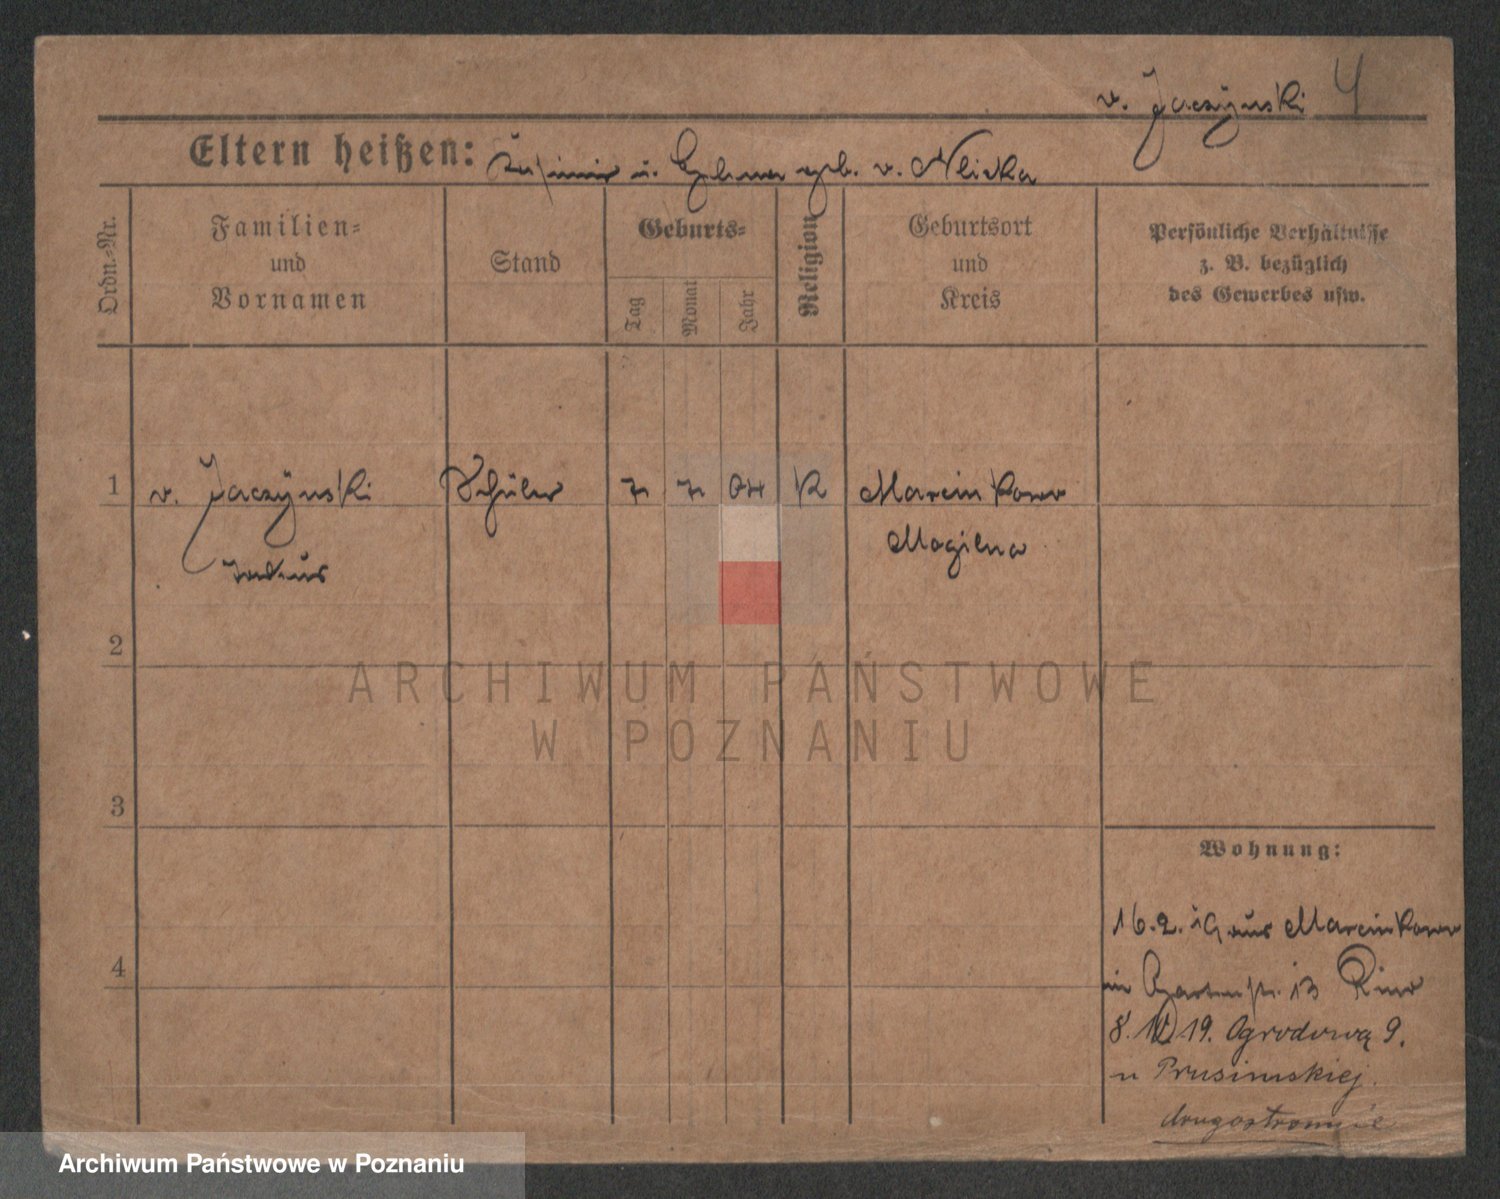 v. Jaczyński 4
Eltern heißen: Kasimir u. geb. v. Nlicka
Ordn.-Nr.
Familien-
und
Vornamen
Stand
Geburts-
Tag
Monat
Jahr
Religion
Geburtsort
und
Kreis
Persönliche Verhältnisse
z. B. bezüglich
des Gewerbes usw.
1 v. Jaczyński Schüler 7 7 04 K Marcinkowo
Mogilno
2
3
4
Wohnung:
16.2. 19 aus Marcinkowo
in Gartenstr. 13
8. IV 19. Ogrodowa 9.
u Prusimskiej.
drugostronnie
ARCHIWUM PAŃSTWOWE
W POZNANIU
Archiwum Państwowe w Poznaniu